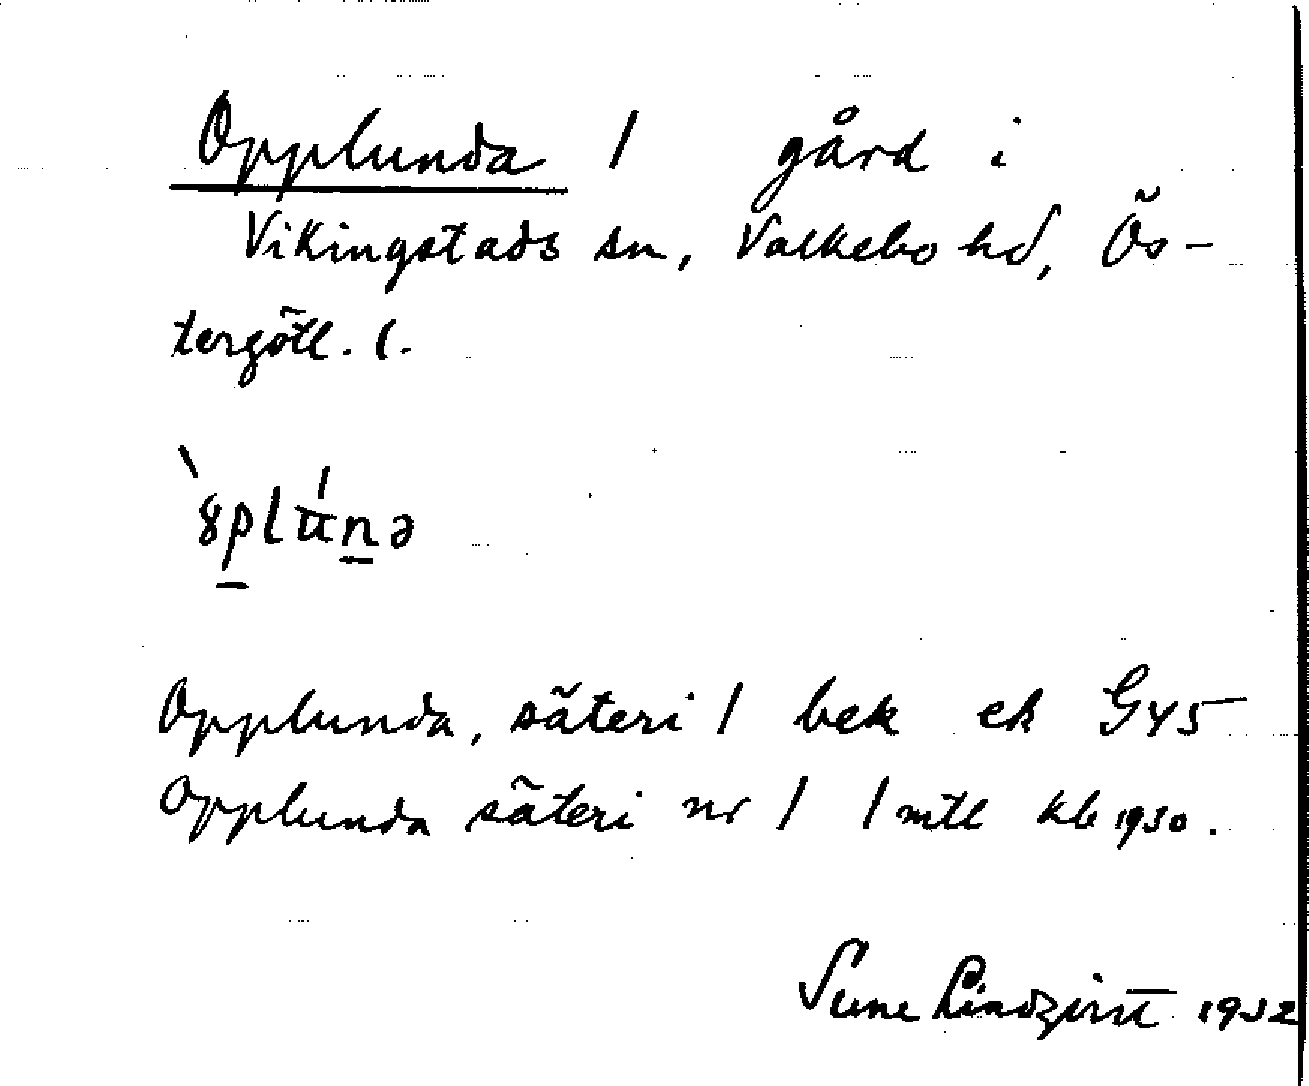 Opplunda 1 gård i
Vikingstads sn, Valkebo hd, Ös-
tergötl. l.
`8plu̅́nə
Opplunda, säteri 1 bek ek G45
Opplunda säteri nr 1 1 mtl kb 1930.
Sune Lindqvist 1932